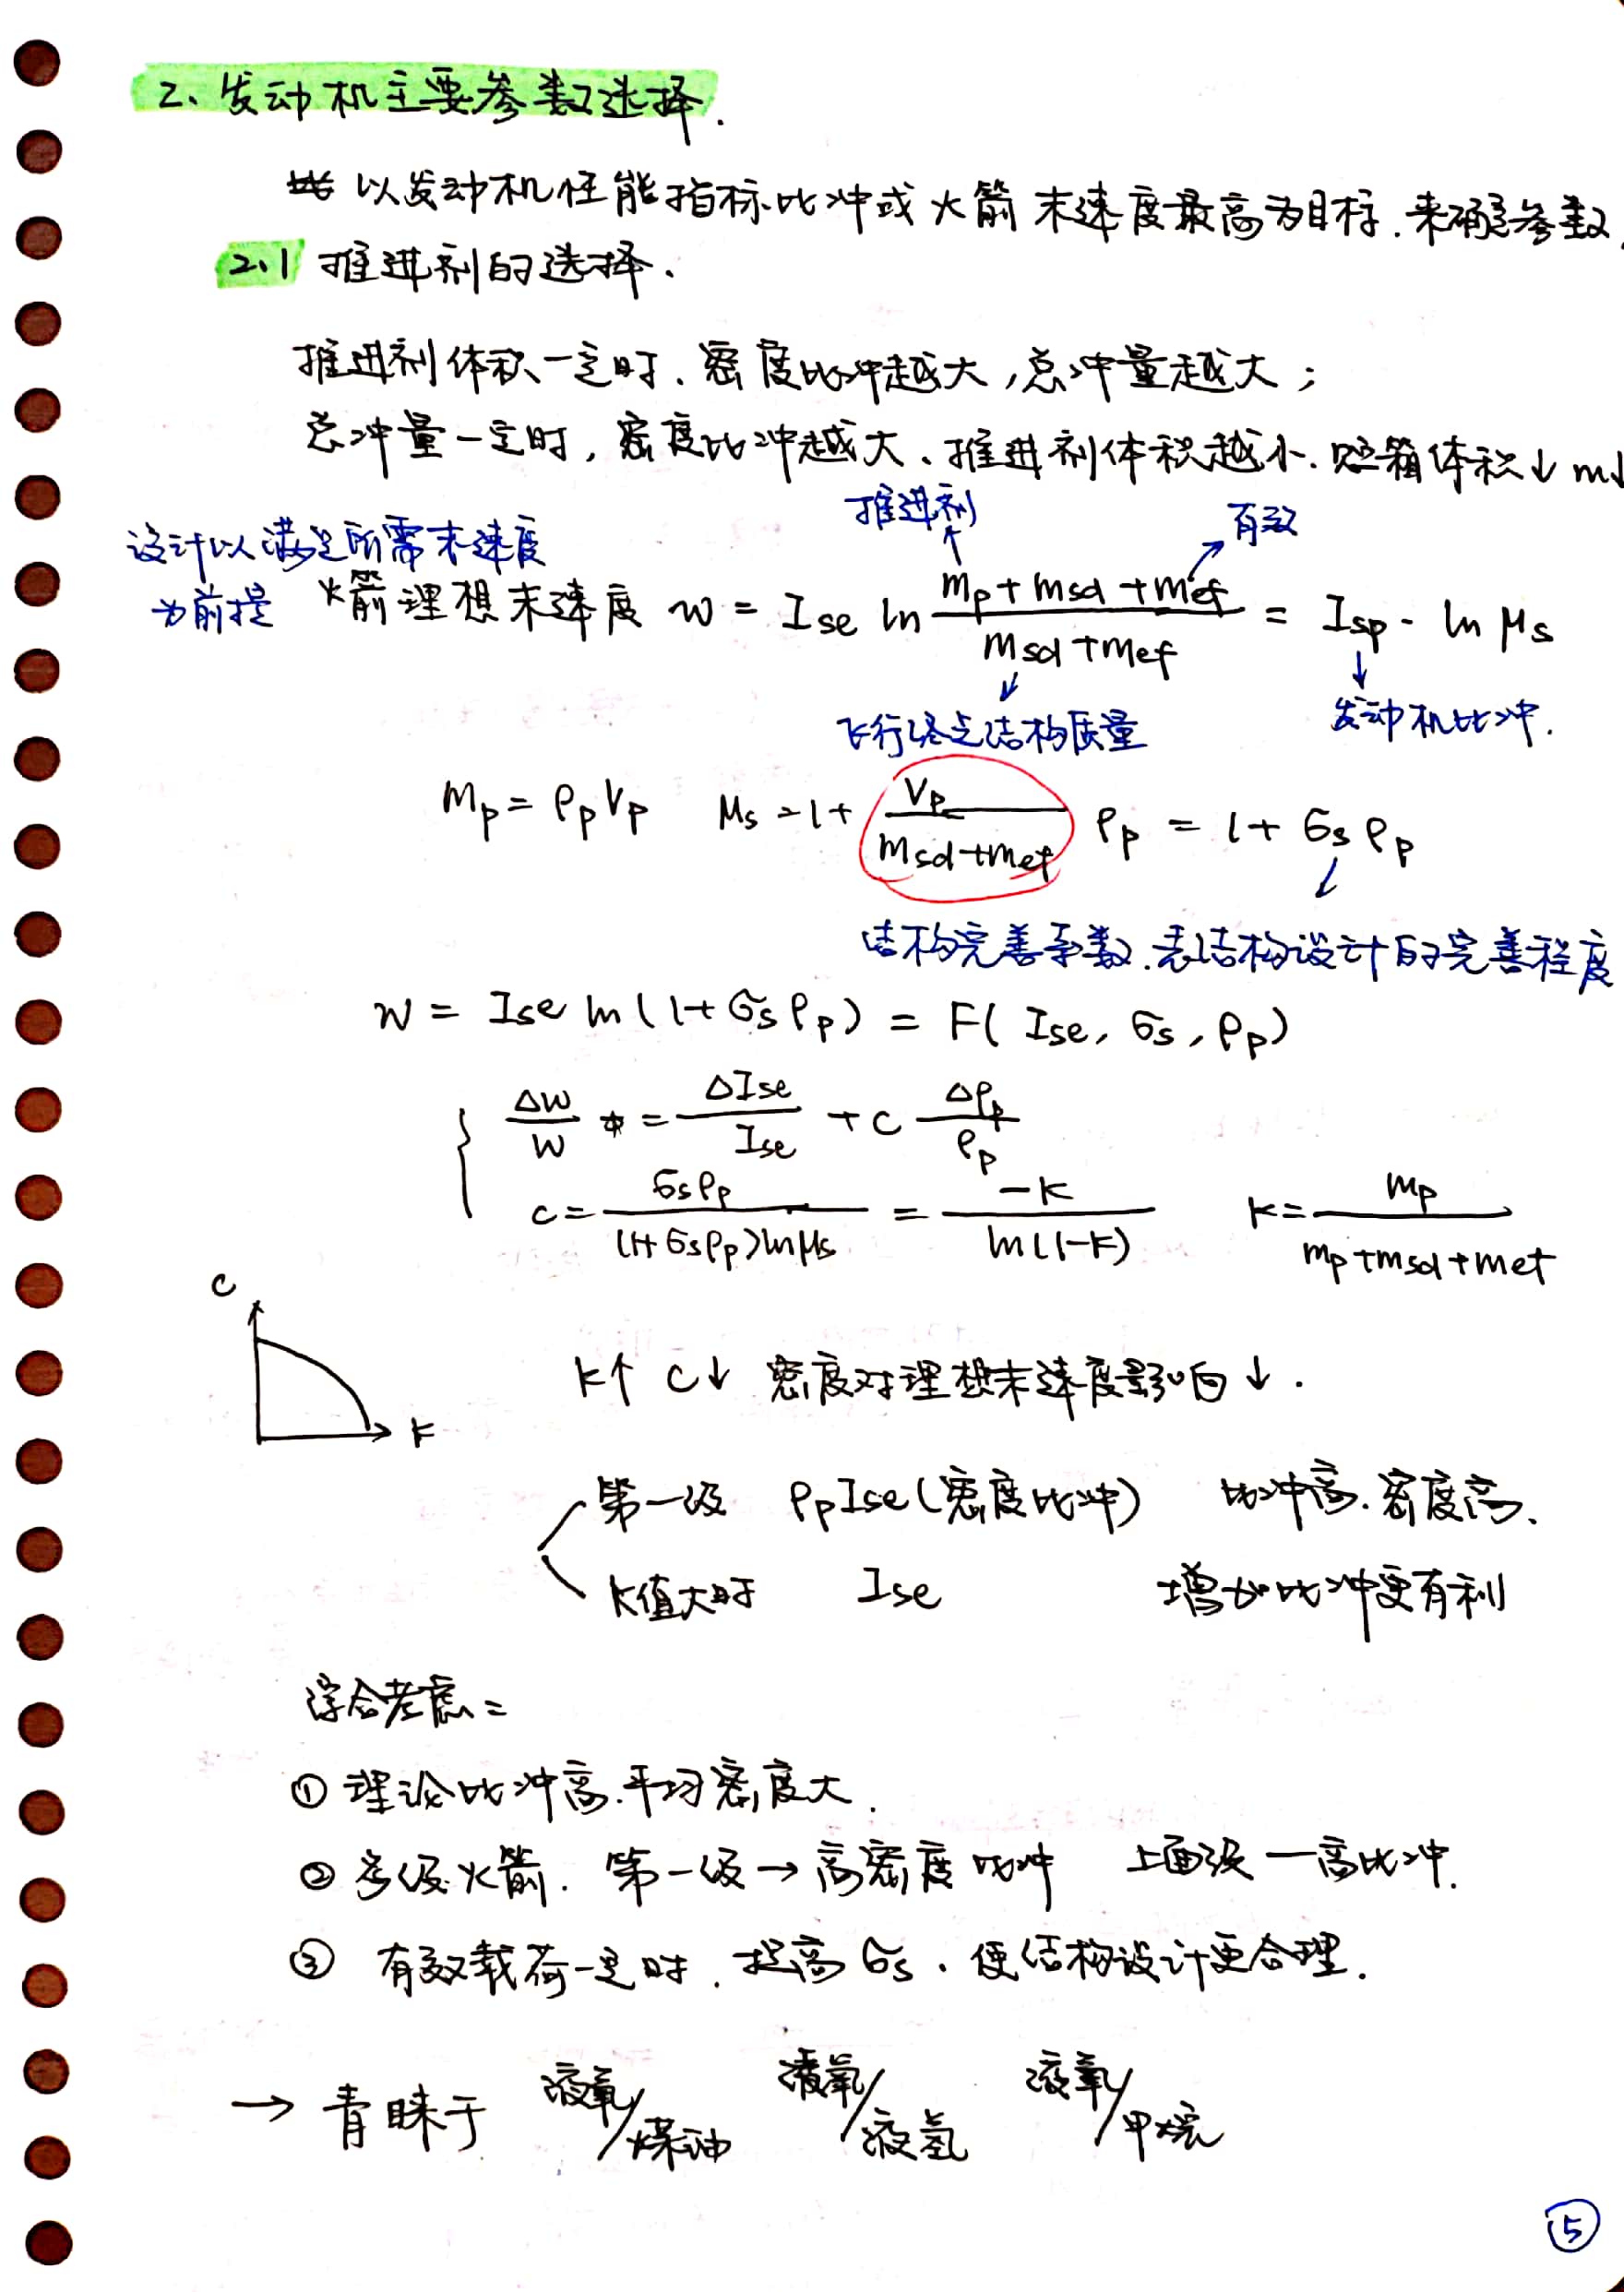 2、发动机主要参数选择.
以发动机性能指标比冲或火箭末速度最高为目标.来确定参数.
2.1 推进剂的选择、
推进剂体积一定时、密度比冲越大,总冲量越大;
总冲量一定时,密度比冲越大、推进剂体积越小.贮箱体积↓ m↓
推进剂 有效
设计以满足所需末速度
为前提 火箭理想末速度 w = Ise ln (mp+msd+mef)/(msd+mef) = Isp · ln μs
飞行终点结构质量 发动机比冲.
mp = ρpVp μs = 1+ Vp/(msd+mef) ρp = 1+ σs ρp
结构完善系数.表结构设计的完善程度
w = Ise ln(1+σsρp) = F( Ise, σs, ρp)
Δw/w = ΔIse/Ise + c Δρp/ρp
c = σsρp/((1+σsρp)lnμs) = -k/ln(1-k) k = mp/(mp+msd+mef)
c
k
k↑ c↓ 密度对理想末速度影响↓.
第一级 ρpIse(密度比冲) 比冲高.密度高、
k值大时 Ise 增加比冲更有利
综合考虑:
① 理论比冲高.平均密度大.
② 多级火箭. 第一级→高密度比冲 上面级—高比冲.
③ 有效载荷一定时.提高σs.使结构设计更合理.
→ 青睐于 液氧/煤油 液氧/液氢 液氧/甲烷
5